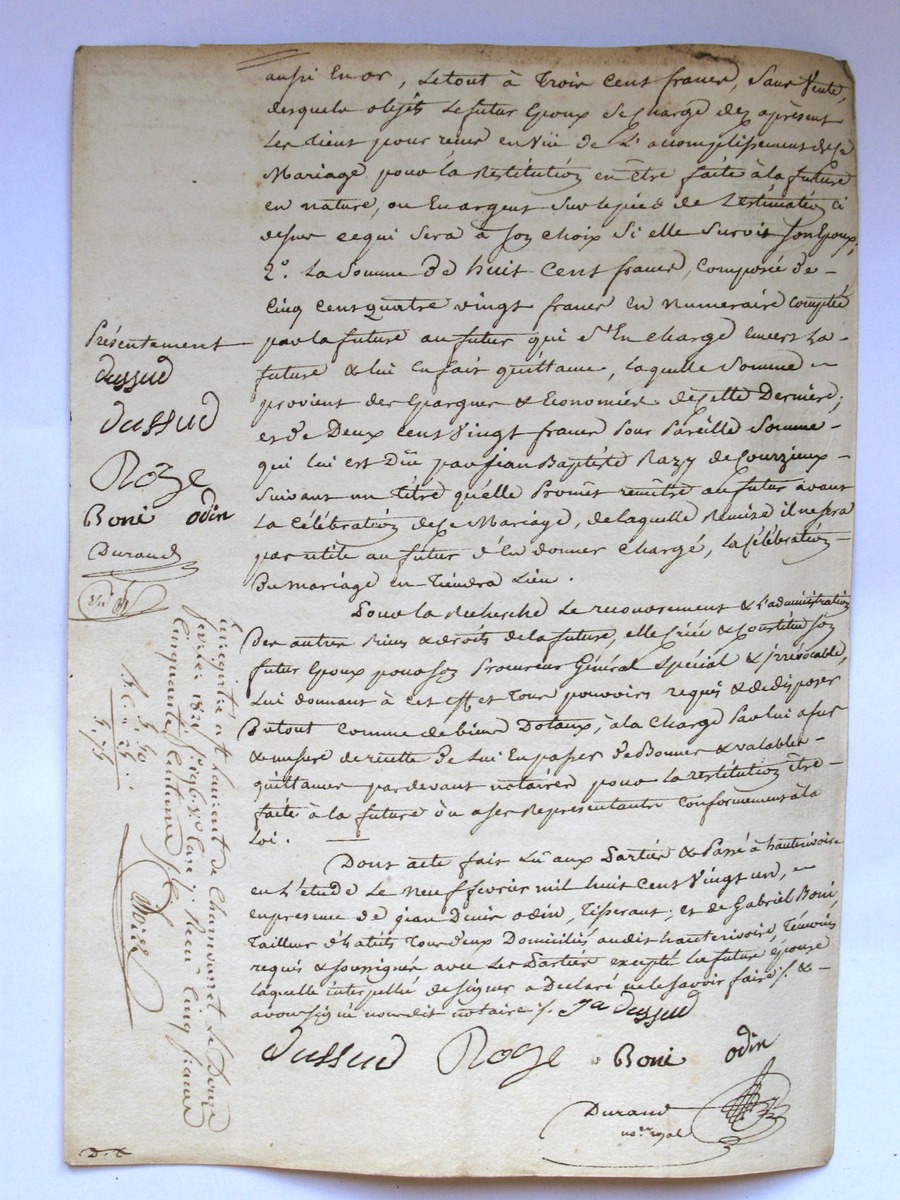 aussi En or, Le tout à Trois Cent francs, Sans Vente,
desquels objets Le futur Epoux Se charge dez apresent
Les tient pour reçus en Vüe de L'accomplissement de Ce
Mariage pour la Restitution en être faite à la future
en nature, ou En argent Sur le pied de L'estimation ci
dessus ce qui Sera à Son choix Si elle Survit Son Epoux,
2°. La Somme de huit Cent francs, Composée de
Cinq Cens quatre vingt francs En Numeraire Comptée
par la future au futur qui S'En charge Envers La
future & lui En fait quittance, laquelle Somme
provient des Epargnes & Economies de Cette Derniere;
et de Deux Cens Vingt francs Pour Pareille Somme
qui lui est Düe par Jean Baptiste Razy de Courzieux
Suivant un titre qu'elle Promet remettre au futur avant
La Célébration de Ce Mariage, de laquelle Remise il ne Sera
pas utile au futur d'En donner chargé, la Célébration
Du mariage en Tiendra Lieu.
Pour la Recherche Le recouvrement & L'administration
Des autres Biens & droits de la future, elle Crée & Constitue Son
futur Epoux pour Son Procureur Général Spécial & irrévocable,
Lui donnant à cet effet Tous pouvoirs requis & de disposer
Du tout Comme de biens Dotaux, à la Charge Par lui
& mesure de recette de Lui En passer de Bonnes & valables
quittances par devant notaires pour la restitution Etre
faite à la future ou à Ses Représentants Conformement à la
Loi.
Dont acte fait Lû aux Parties & Passé à hauterivoire
en L'étude Le neuf fevrier mil huit Cent Vingt un,
en présence de jean Denis odin, Tisserant; et de Gabriel Boni
Tailleur d'habits Tous deux Domiciliés audit hauterivoire, Témoins
requis & soussignés avec Les Parties excepté La future épouse
laquelle interpellé de signer a Déclaré ne le Savoir faire /. &
avons signé nous dit notaire /. Ja Dussud
Dussud Roze Boni odin
Durand
no.re royal
Présentement
Dussud
Dussud
Roze
Boni odin
Durand
Enregistré à St Laurent de Chamousset Le Douze
fevrier 1821 f.° 196 V.° Case 7. Recu Cinq francs
Cinquante Centimes
D. C